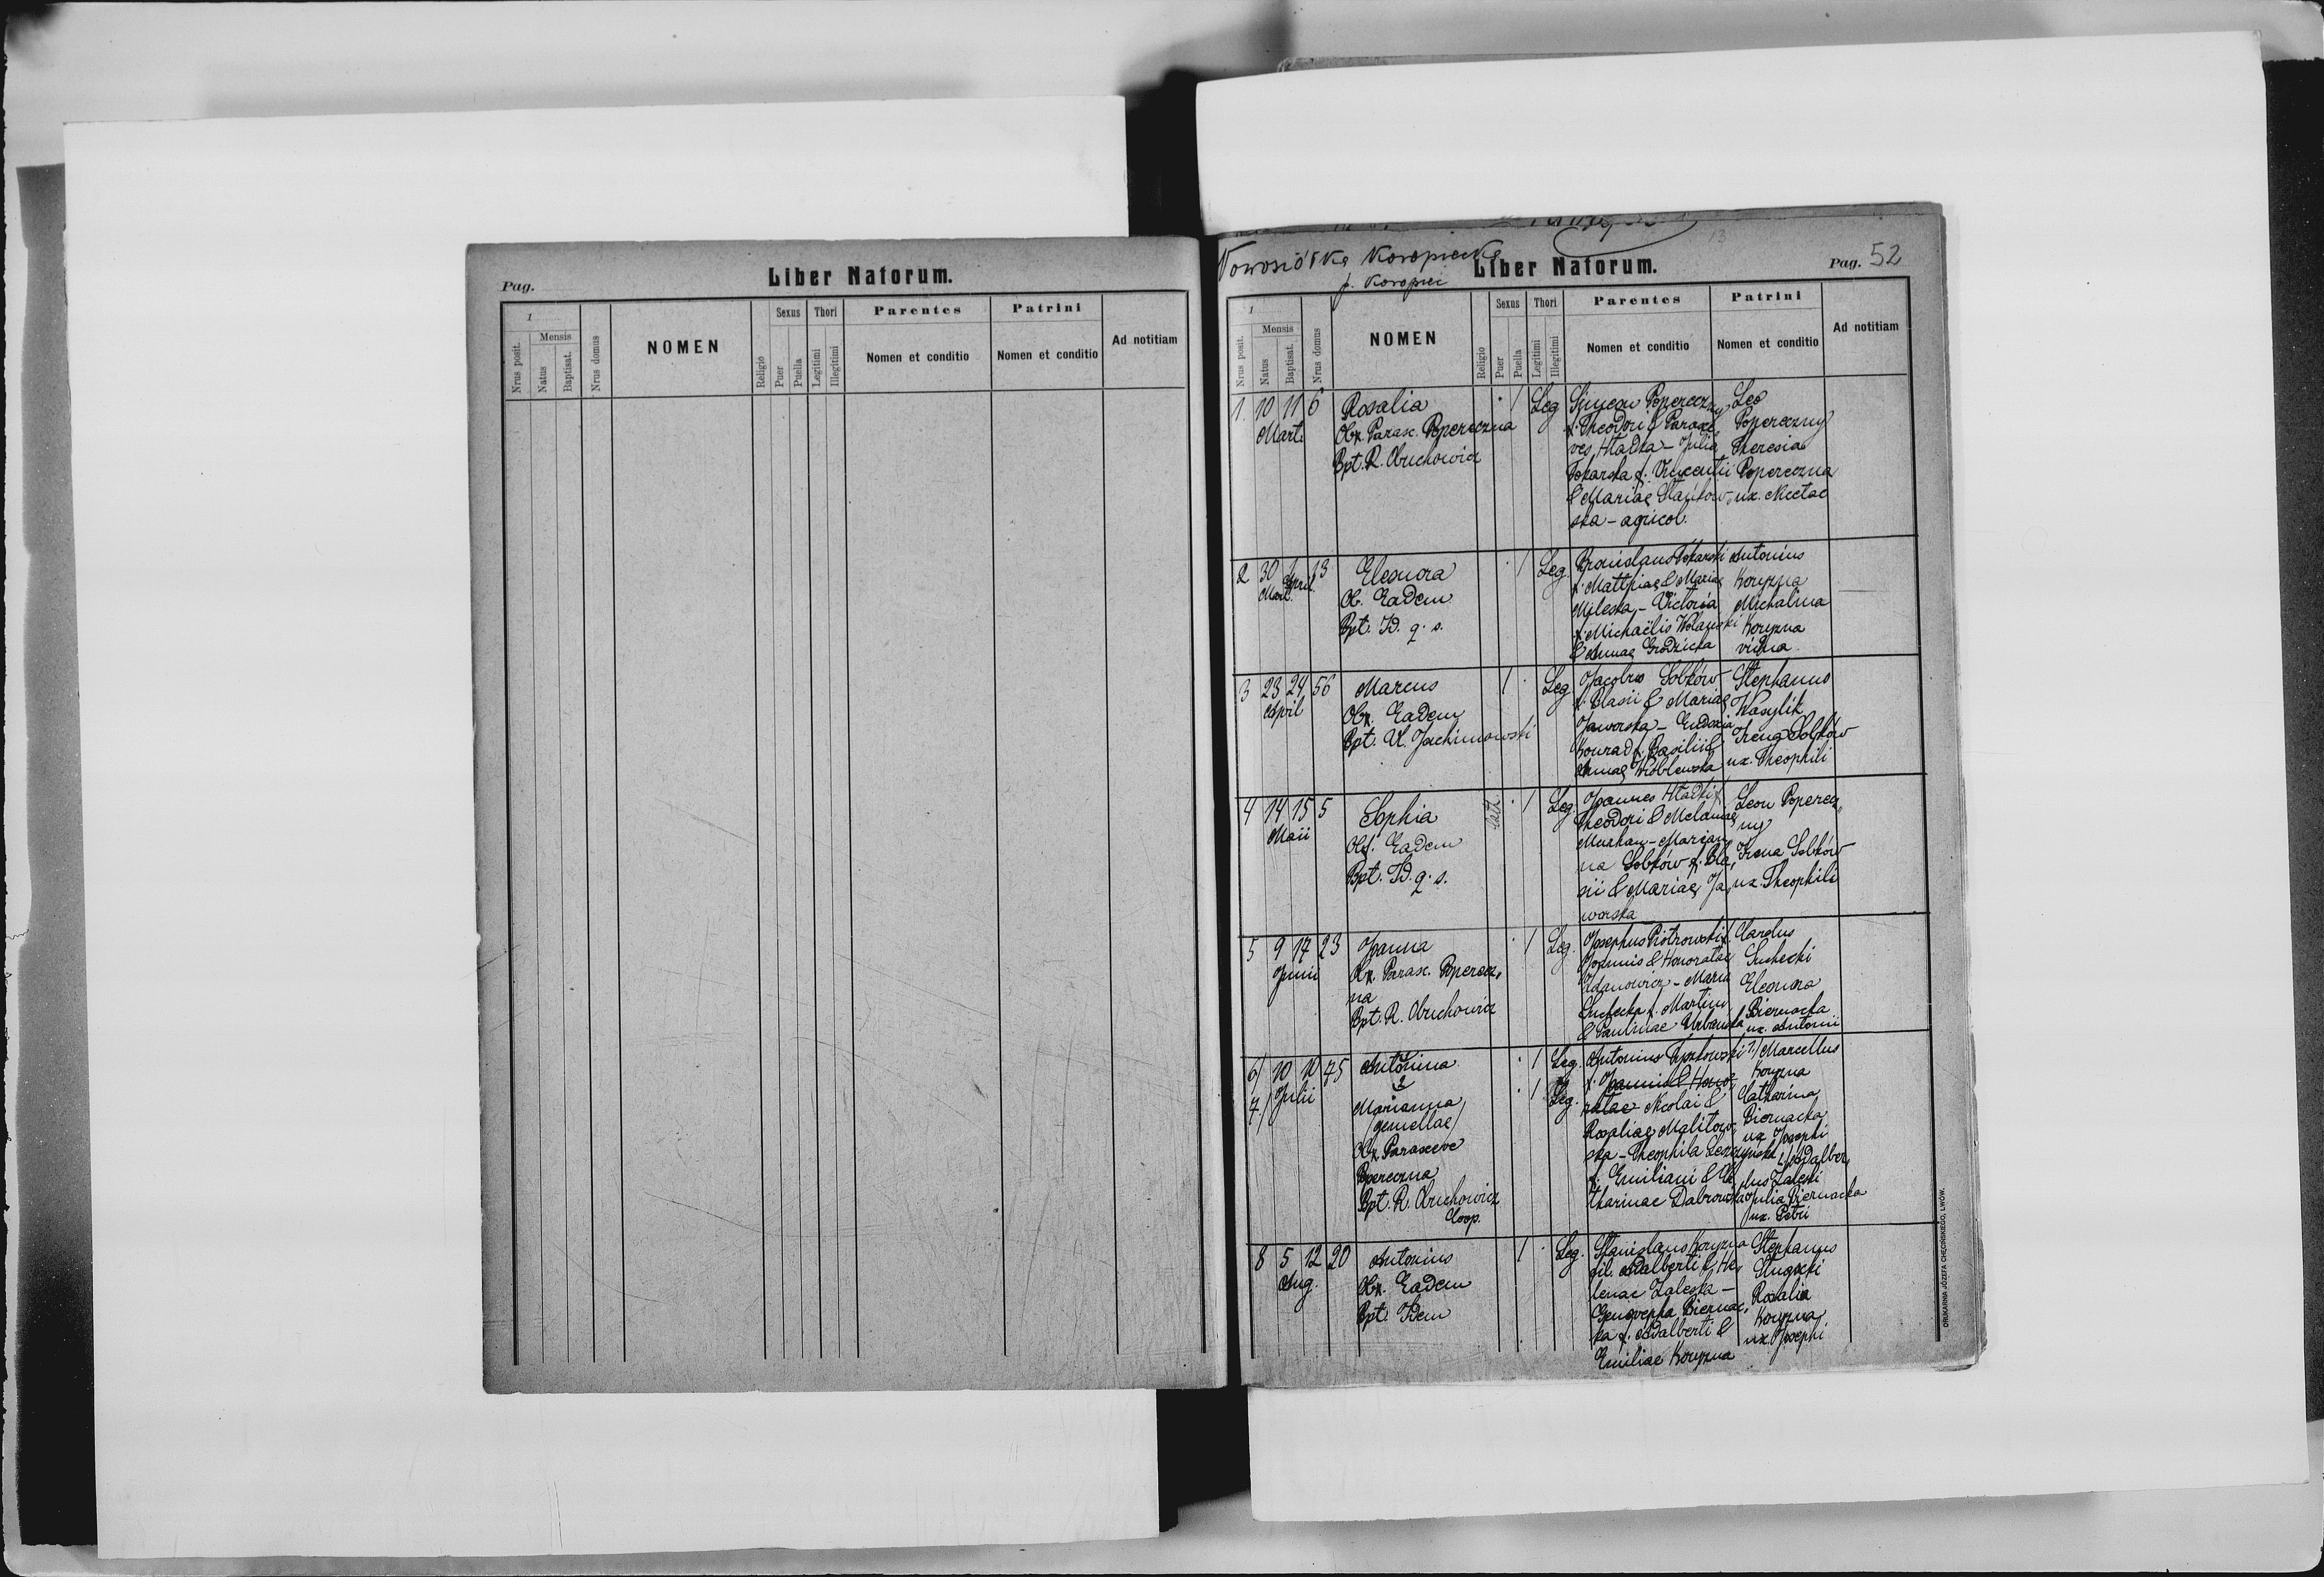 Pag.
Liber Natorum.
1
Mensis
Nrus posit.
Natus
Baptisat.
Nrus domus
NOMEN
Religio
Sexus
Puer
Puella
Thori
Legitimi
Illegitimi
Parentes
Nomen et conditio
Patrini
Nomen et conditio
Ad notitiam
13
Nowosiółka Koropiecka
p. Koropiec
Liber Natorum.
Pag. 52
1
Mensis
Nrus posit.
Natus
Baptisat.
Nrus domus
NOMEN
Religio
Sexus
Puer
Puella
Thori
Legitimi
Illegitimi
Parentes
Nomen et conditio
Patrini
Nomen et conditio
Ad notitiam
1. 10 11 6
Mart.
Rosalia
Obx. Parasc. Popereczna
Bpt. R. Obuchowicz
1 Leg
Simeon Popereczny
f. Theodori & Paraxe
ves Hładka - Julia
Tokarska f. Vincentii
& Mariae Stańkow
ska - agricol.
Leo
Popereczny
Theresia
Popereczna
ux. Nicetae
2 30 1 13
Mart. April.
Eleonora
Ob. Eadem
Bpt. Id. q. s.
1 Leg
Bronislaus Tokarski
f. Matthiae & Mariae
Milska - Victoria
f. Michaëlis Wolanski
& Annae Grodzicka
Antonius
Koryzna
Michalina
Koryzna
vidua
3 23 24 56
April
Marcus
Obx. Eadem
Bpt. Jachimowski
1 Leg
Jacobus Sobków
f. Blasii & Mariae
Jaworska - Eudoxia
Konrad f. Basilii &
Annae Wróblewska
Stephanus
Wasylik
Irena Sobków
ux. Theophili
4 14 15 5
Maii
Sophia
Obx. Eadem
Bpt. Id. q. s.
1 Leg.
Joannes Hładki f.
Theodori & Melaniae
- Marian
na Sobków f. Bla
sii & Mariae Ja
worska
Leon Poperecz
ny
Irena Sobków
ux. Theophili
5 9 17 23
Junii
Joanna
Obx. Parasc. Poperecz
na
Bpt. R. Obuchowicz
1 Leg.
Josephus Piotrowski f.
Joannis & Honoratae
Adamowicz - Maria
Suchecka f. Martini
& Paulinae Urbanska
Carolus
Suchecki
Eleonora
Biernacka
ux. Antonii
6/ 10 10 75
7/ Julii
Antonina
&
Marianna
/gemellae/
Obx. Parasceve
Popereczna
Bpt. R. Obuchowicz
Coop.
1 Leg.
1 Leg.
Antonius
f. Joannis & Hono
ratae - Nicolai &
Rosaliae Malitow
ska - Theophila Leszczynska
f. Emiliani & Ca
tharinae Dabrowska
Marcellus
Koryzna
Catharina
Biernacka
ux. Josephi
Adalber
tus Zaleski
Julia Biernacka
ux. Petri
8 5 12 20
Aug.
Antonius
Obx. Eadem
Bpt. Idem
1 Leg.
Stanislaus Koryzna
fil. Adalberti & He
lenae Zaleska -
Genovepha Biernac
ka f. Adalberti &
Emiliae Koryzna
Stephanus
Rosalia
Koryzna
ux. Josephi
DRUKARNIA JÓZEFA CHĘCIŃSKIEGO, LWÓW.